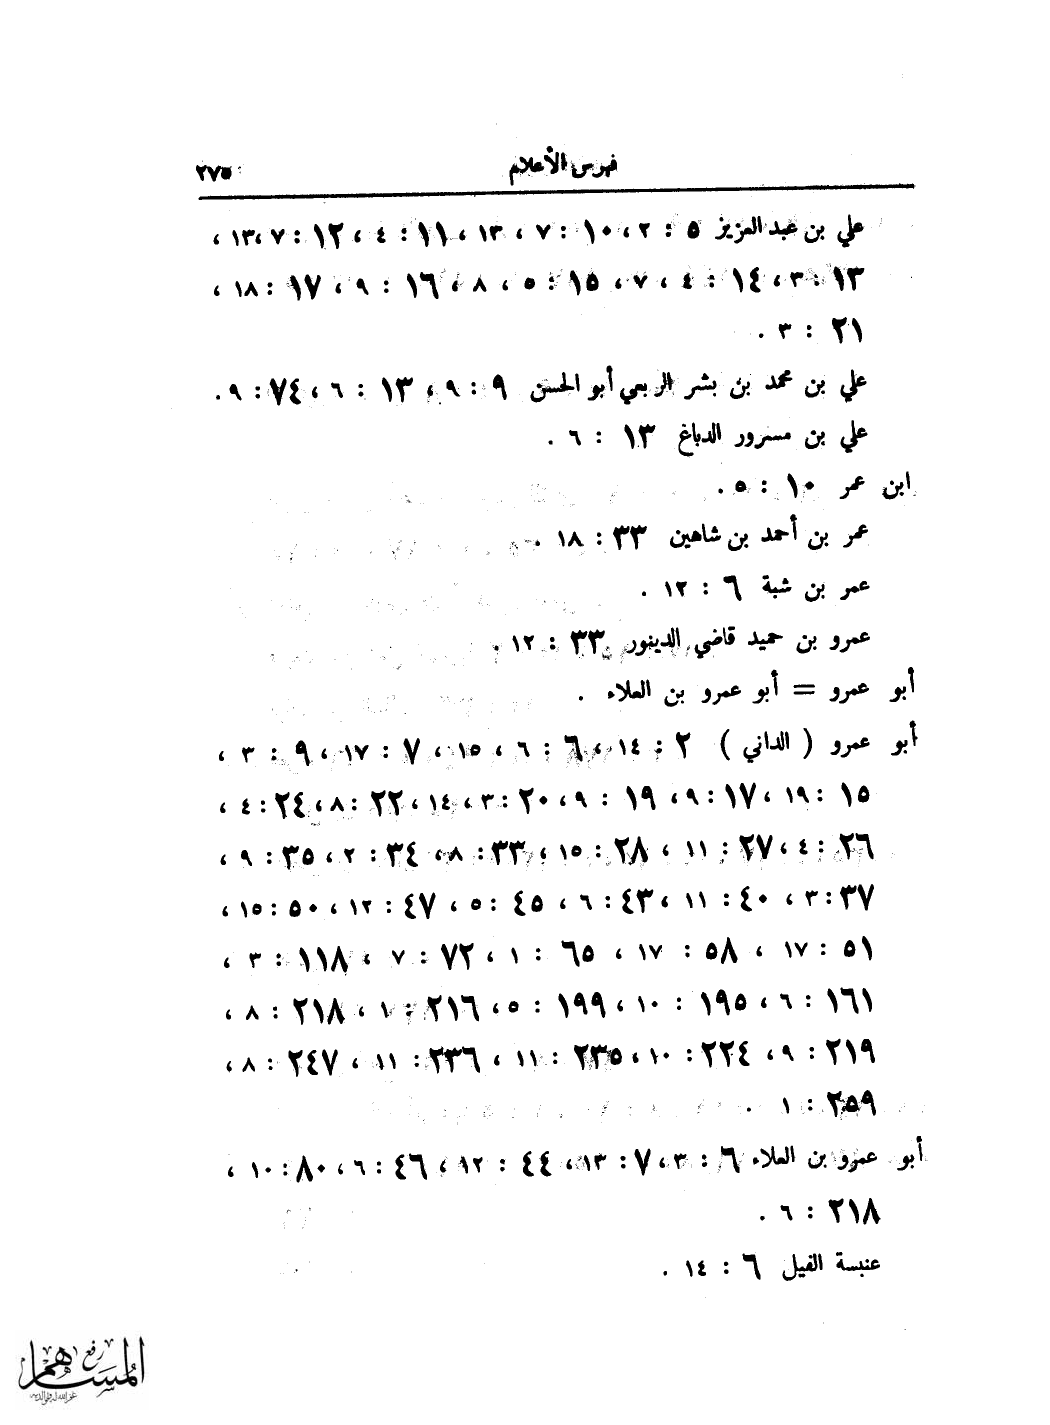 فهرس الأعلام ٢٧٥
علي بن عبد العزيز ٥ : ٢ ، ١٠ : ٧ ، ١٣ ، ١١ : ٤ ، ١٢ : ٧ ، ١٣ ،
١٣ : ٣ ، ١٤ : ٤ ، ٧ ، ١٥ : ٥ ، ٨ ، ١٦ : ٩ ، ١٧ : ١٨ ،
٢١ : ٣ .
علي بن محمد بن بشر الربعي أبو الحسن ٩ : ٩ ، ١٣ : ٦ ، ٧٤ : ٩ .
علي بن مسرور الدباغ ١٣ : ٦ .
ابن عمر ١٠ : ٥ .
عمر بن أحمد بن شاهين ٣٣ : ١٨ .
عمر بن شبة ٦ : ١٢ .
عمرو بن حميد قاضي الدينور ٣٣ : ١٢ .
أبو عمرو = أبو عمرو بن العلاء .
أبو عمرو ( الداني ) ٢ : ١٤ ، ٦ : ٦ ، ١٥ ، ٧ : ١٧ ، ٩ : ٣ ،
١٥ : ١٩ ، ١٧ : ٩ ، ١٩ : ٩ ، ٢٠ : ٣ ، ١٤ ، ٢٢ : ٨ ، ٢٤ : ٤ ،
٢٦ : ٤ ، ٢٧ : ١١ ، ٢٨ : ١٥ ، ٣٣ : ٨ ، ٣٤ : ٢ ، ٣٥ : ٩ ،
٣٧ : ٣ ، ٤٠ : ١١ ، ٤٣ : ٦ ، ٤٥ : ٥ ، ٤٧ : ١٢ ، ٥٠ : ١٥ ،
٥١ : ١٧ ، ٥٨ : ١٧ ، ٦٥ : ١ ، ٧٢ : ٧ ، ١١٨ : ٣ ،
١٦١ : ٦ ، ١٩٥ : ١٠ ، ١٩٩ : ٥ ، ٢١٦ : ١ ، ٢١٨ : ٨ ،
٢١٩ : ٩ ، ٢٢٤ : ١٠ ، ٢٣٥ : ١١ ، ٢٣٦ : ١١ ، ٢٤٧ : ٨ ،
٢٥٩ : ١ .
أبو عمرو بن العلاء ٦ : ٣ ، ٧ : ١٣ ، ٤٤ : ١٢ ، ٤٦ : ٦ ، ٨٠ : ١٠ ،
٢١٨ : ٦ .
عنبسة الفيل ٦ : ١٤ .
رفع
المساهم
غفر الله له ولوالديه